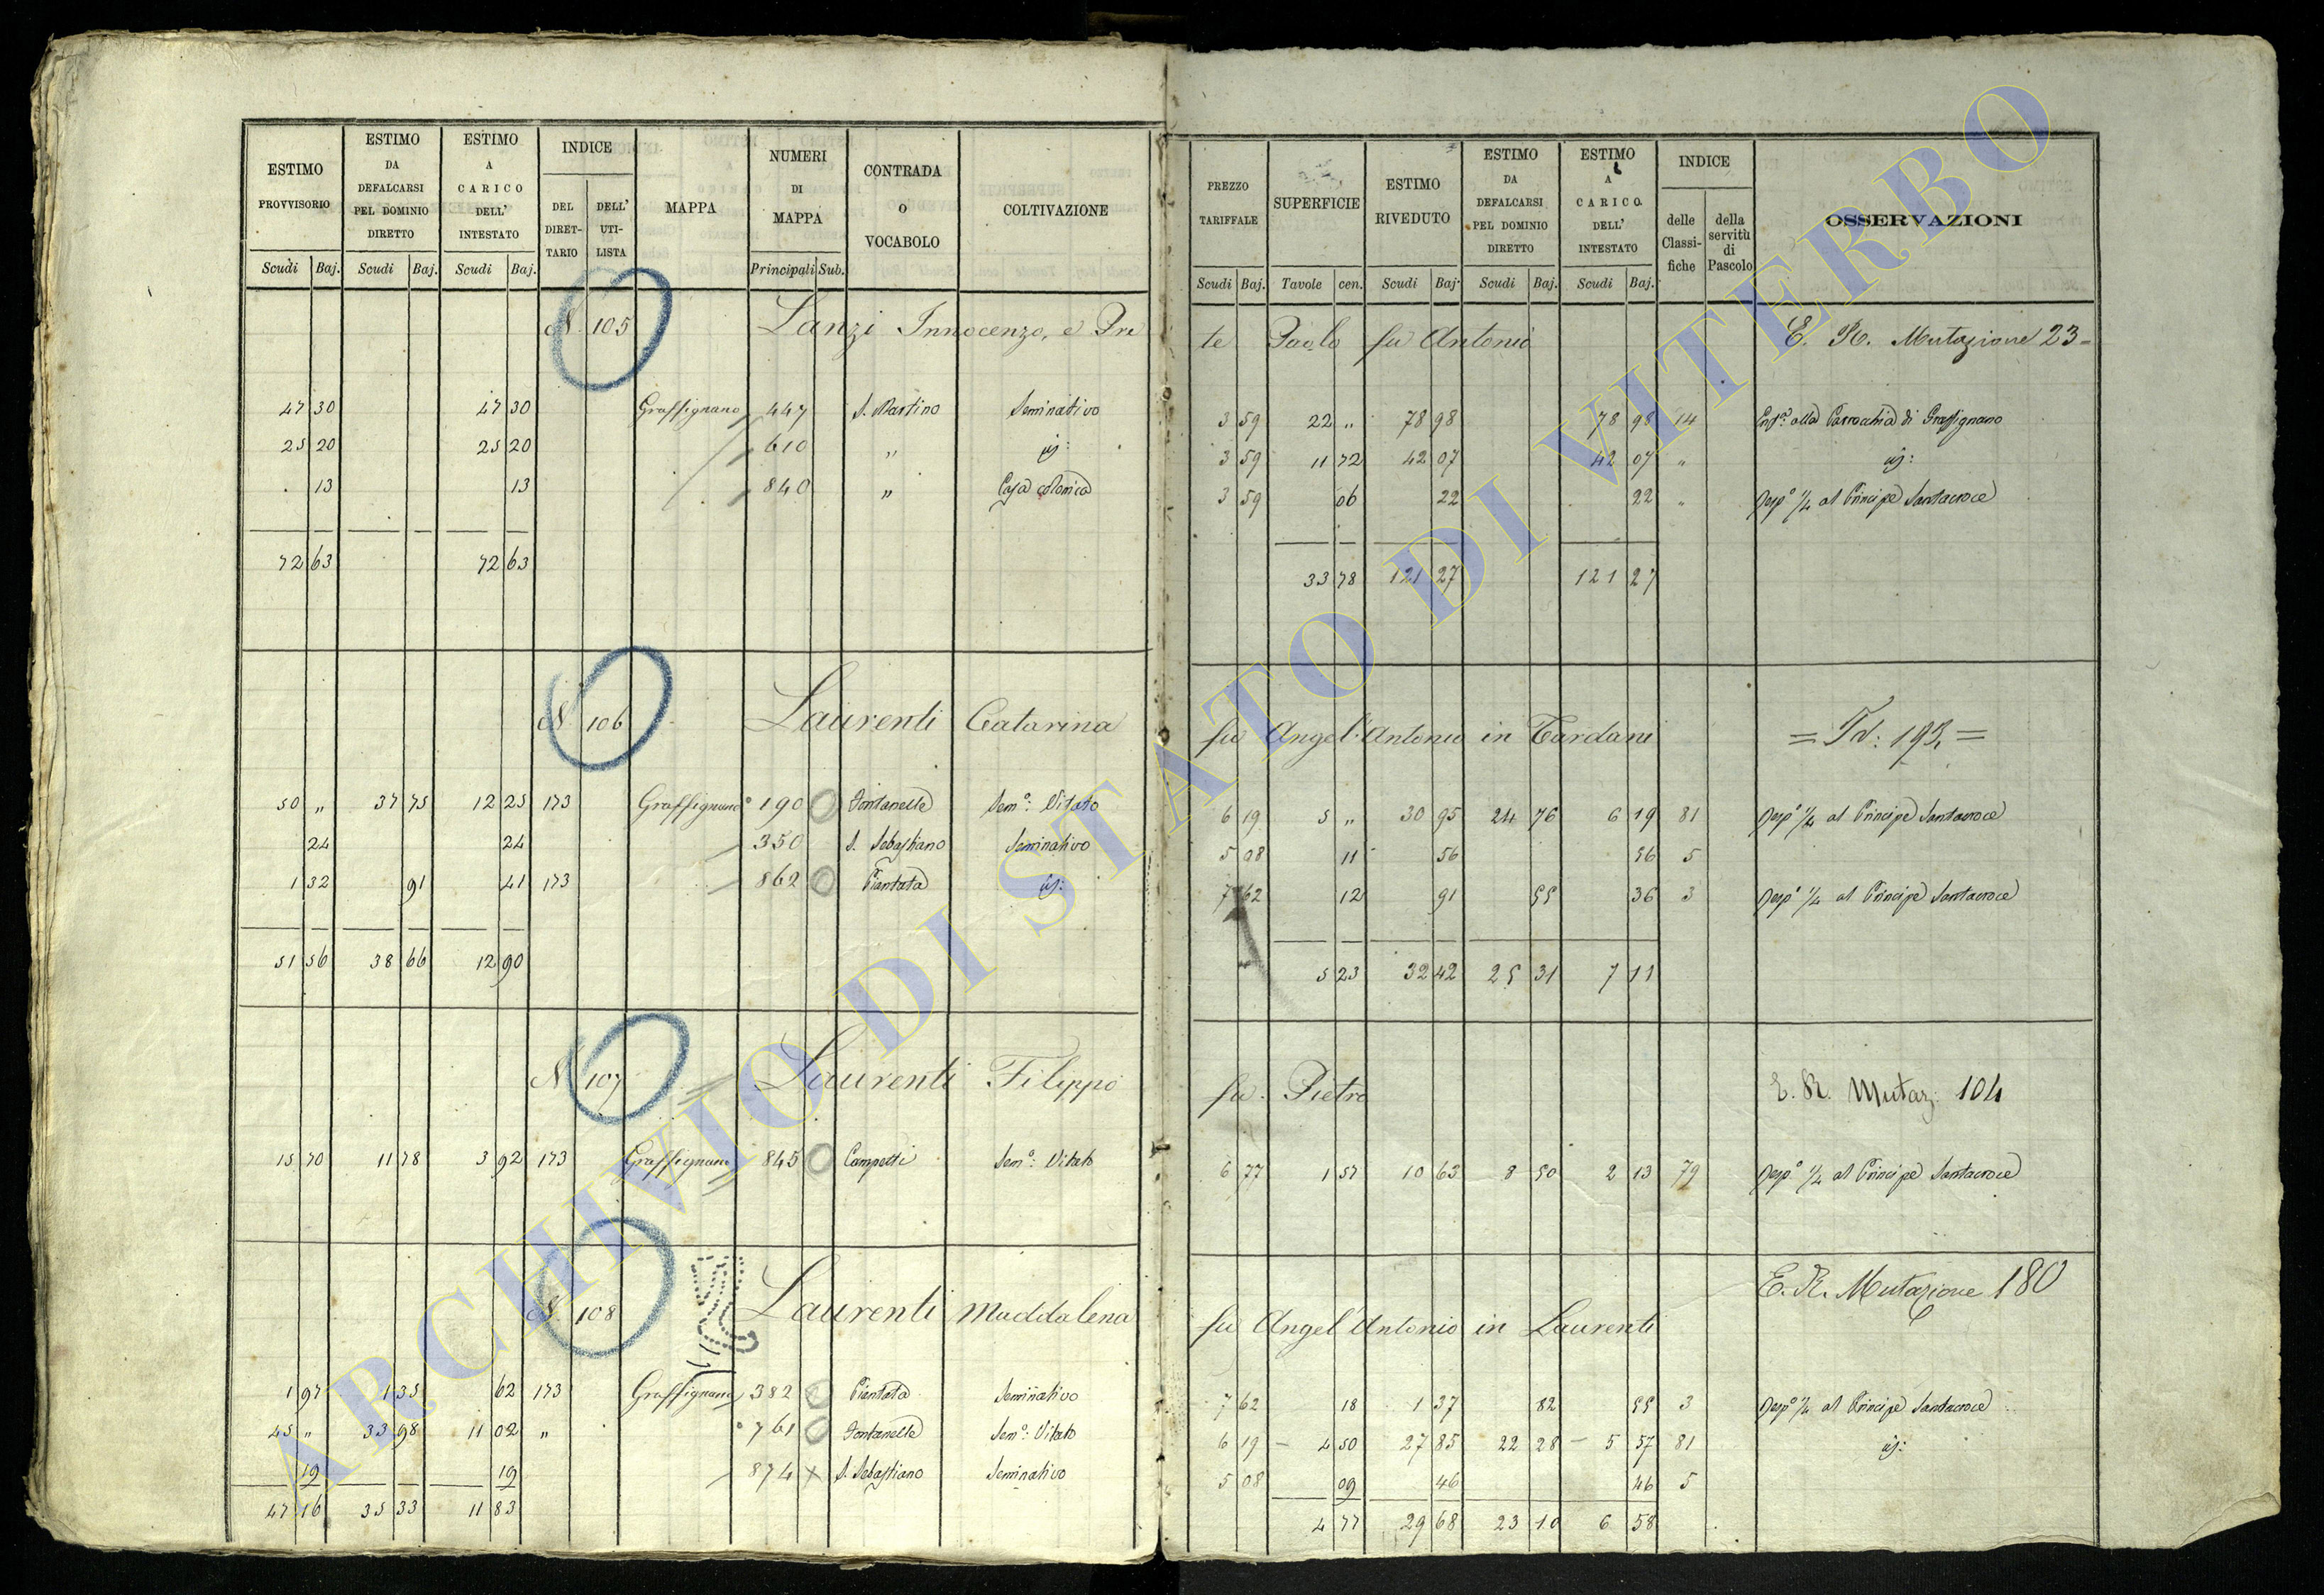 ESTIMO PROVVISORIO ESTIMO DA DEFALCARSI PEL DOMINIO DIRETTO ESTIMO A CARICO DELL' INTESTATO INDICE DEL DIRETTARIO DELL' UTILISTA MAPPA NUMERI DI MAPPA CONTRADA O VOCABOLO COLTIVAZIONE
Scudi Baj. Scudi Baj. Scudi Baj. Principali Sub.
N. 105 Lanzi Innocenzo, e Pre
47 30 47 30 Graffignano 447 S. Martino Seminativo
25 20 25 20 610 „ id:
13 13 840 „ Casa colonica
72 63 72 63
N. 106 Laurenti Catarina
50 „ 37 75 12 25 173 Graffignano 190 Fontanelle Sem.º Vitato
24 24 350 S. Sebastiano Seminativo
1 32 91 41 173 862 Piantata id:
51 56 38 66 12 90
N. 107 Laurenti Filippo
15 70 11 78 3 92 173 Graffignano 845 Campetti Sem.º Vitato
N. 108 Laurenti Maddalena
1 97 1 35 62 173 Graffignano 382 Piantata Seminativo
45 „ 33 98 11 02 „ 761 Fontanelle Sem.º Vitato
19 19 874 S. Sebastiano Seminativo
47 16 35 33 11 83
PREZZO TARIFFALE SUPERFICIE ESTIMO RIVEDUTO ESTIMO DA DEFALCARSI PEL DOMINIO DIRETTO ESTIMO A CARICO DELL' INTESTATO INDICE delle Classifiche della servitù di Pascolo OSSERVAZIONI
Scudi Baj. Tavole cen. Scudi Baj. Scudi Baj. Scudi Baj.
te Paolo fu Antonio E. R. Mutazione 23=
3 59 22 „ 78 98 78 98 14 alla Parrocchia di Graffignano
3 59 11 72 42 07 42 07 „ id:
3 59 06 22 22 „ Resp.º 1/4 al Principe Santacroce
33 78 121 27 121 27
fu Angel'Antonio in Tardani = Id: 193 =
6 19 5 „ 30 95 24 76 6 19 81 Resp.º 1/4 al Principe Santacroce
5 08 11 56 56 5
7 62 12 91 55 36 3 Resp.º 1/4 al Principe Santacroce
5 23 32 42 25 31 7 11
fu Pietro E. R. Mutaz: 104
6 77 1 57 10 63 8 50 2 13 79 Resp.º 1/4 al Principe Santacroce
E. R. Mutazione 180
fu Angel'Antonio in Laurenti
7 62 18 1 37 82 55 3 Resp.º 1/4 al Principe Santacroce
6 19 4 50 27 85 22 28 5 57 81 id:
5 08 09 46 46 5
4 77 29 68 23 10 6 58
ARCHIVIO DI STATO DI VITERBO